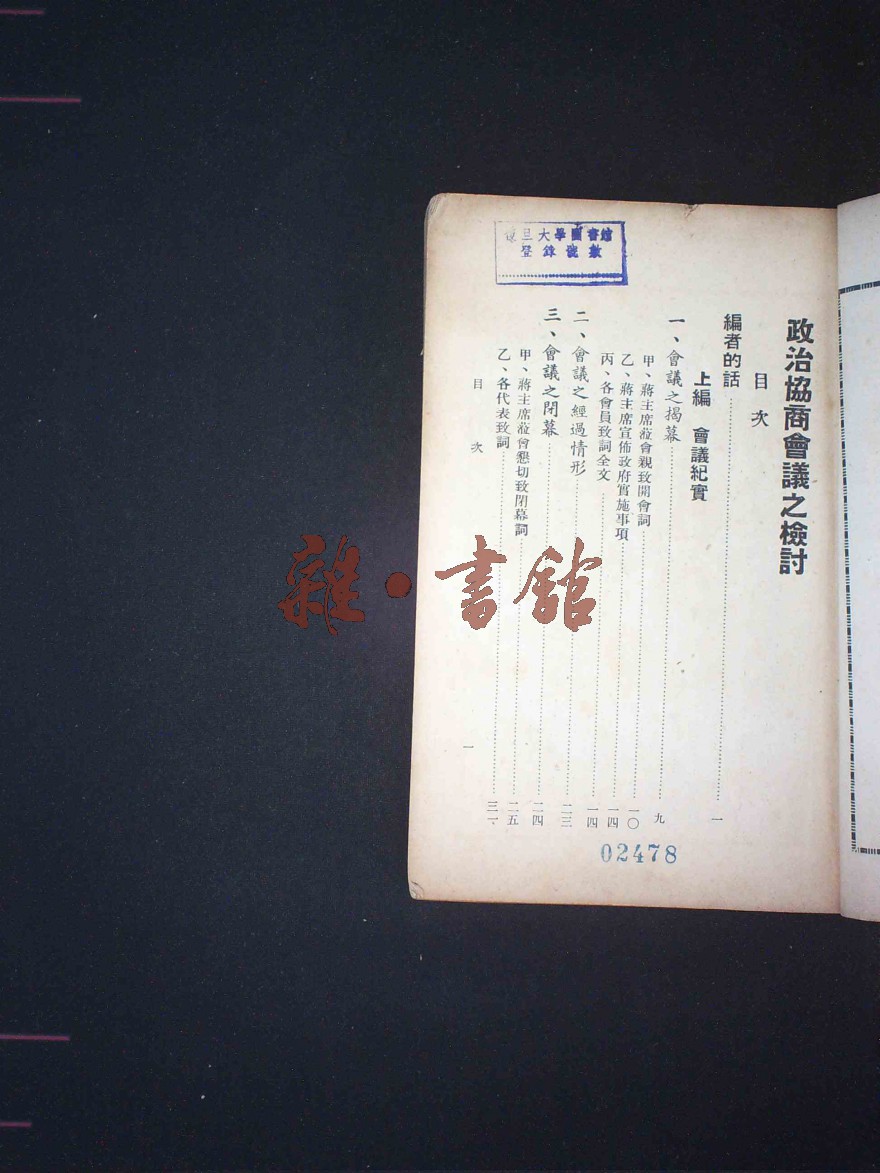 復旦大學圖書館
登錄號數
政治協商會議之檢討
目次
編者的話……一
上編 會議紀實
一、會議之揭幕……九
甲、蔣主席蒞會親致開會詞……一〇
乙、蔣主席宣佈政府實施事項……一四
丙、各會員致詞全文……一四
二、會議之經過情形……二三
三、會議之閉幕……二四
甲、蔣主席蒞會懇切致閉幕詞……二五
乙、各代表致詞……三一
目次 一
02478
雜·書館